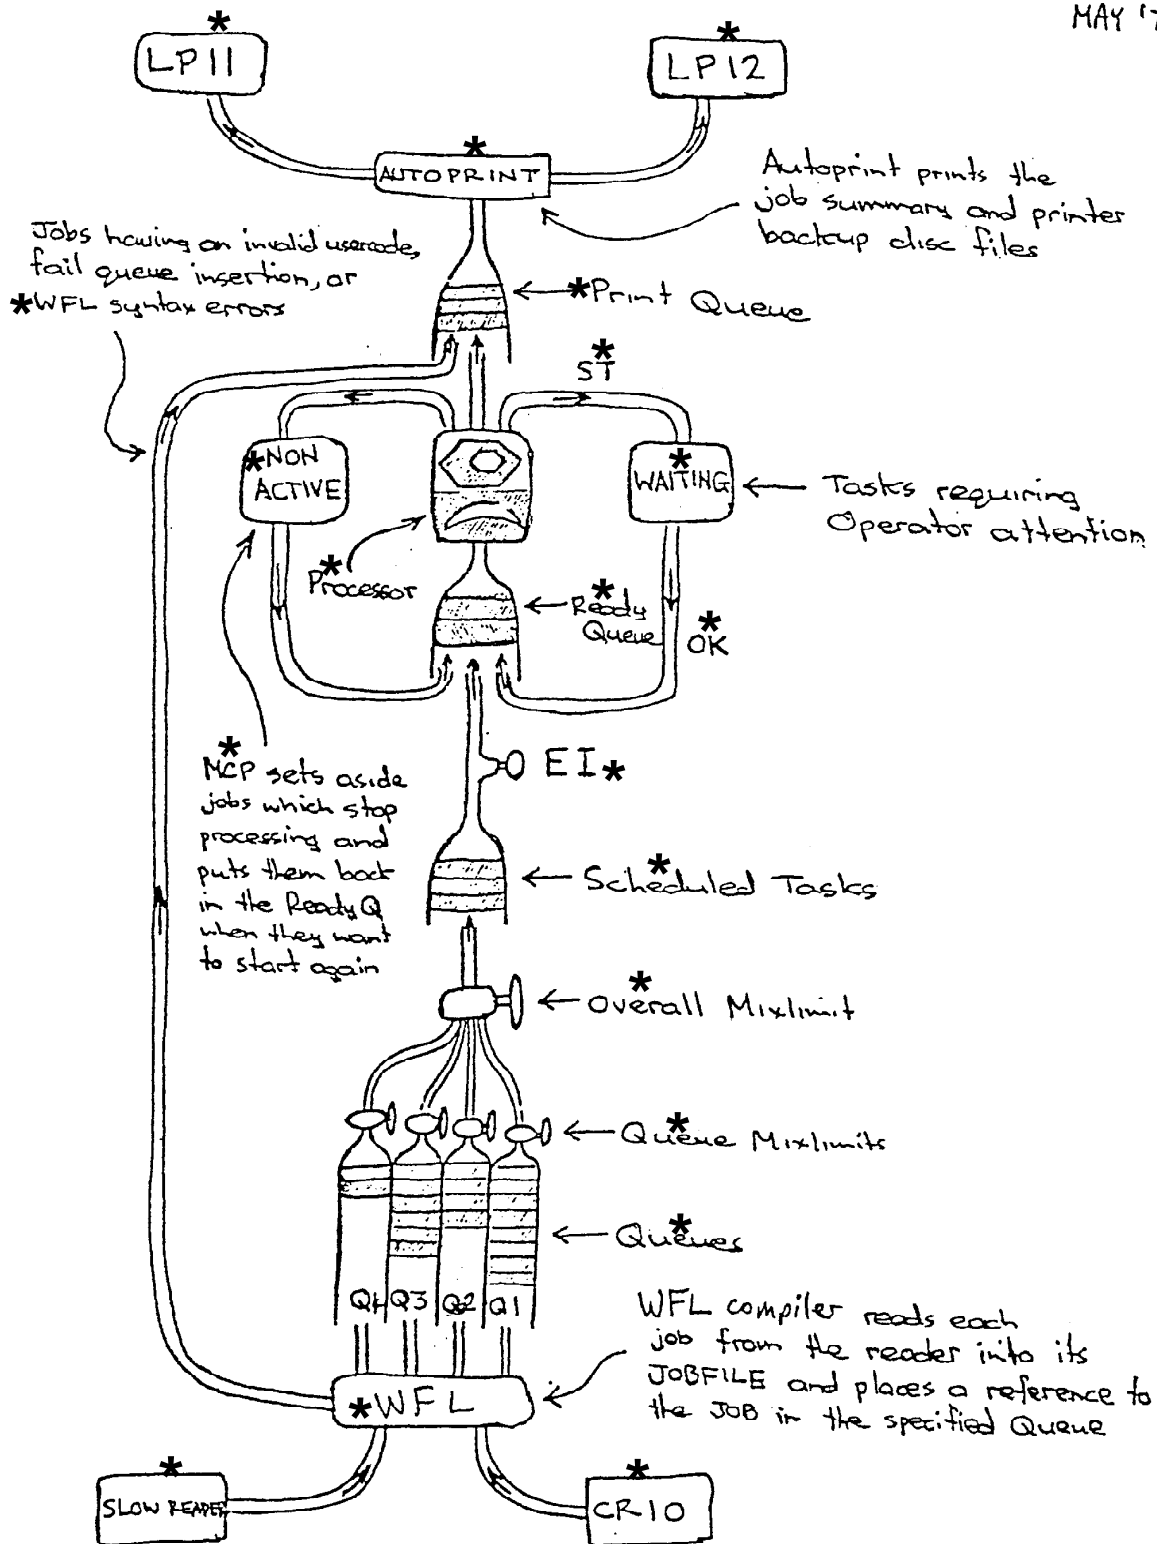 MAY '7
*
LP11
*
LP12
*
AUTOPRINT
Autoprint prints the
job summary and printer
backup disc files
Jobs having an invalid usercode,
fail queue insertion, or
*WFL syntax errors
*Print Queue
*
ST
*NON
ACTIVE
*
WAITING
Tasks requiring
Operator attention
*
Processor
*
Ready
Queue
*
OK
*
MCP sets aside
jobs which stop
processing and
puts them back
in the Ready Q
when they want
to start again
EI*
*
Scheduled Tasks
*
Overall Mixlimit
*
Queue Mixlimits
*
Queues
Q4 Q3 Q2 Q1
WFL compiler reads each
job from the reader into its
JOBFILE and places a reference to
the JOB in the specified Queue
*WFL
*
SLOW READER
*
CR10